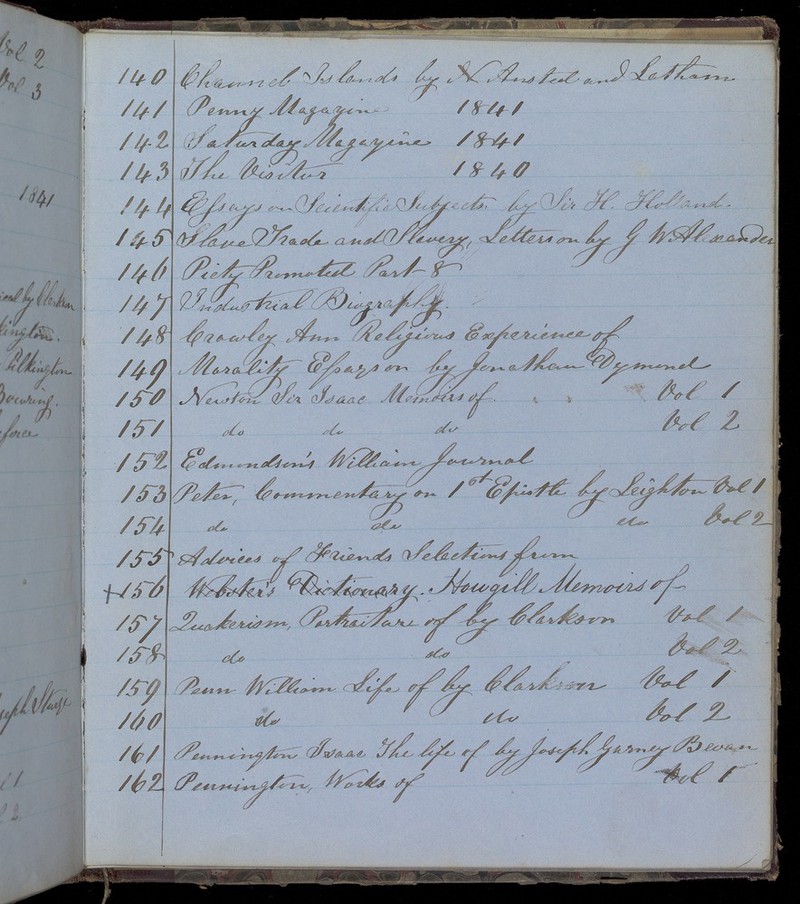 Vol 2
Vol 3
1841
Pilkington
140 Channel Islands by Ansted and Latham
141 Penny Magazine 1841
142 Saturday Magazine 1841
143 The Visitor 1840
144 Essays on Scientific Subjects by Sir H. Holland.
145 Slave Trade and Slavery, Letters on by G W. Alexander
146 Piety Promoted Part 8
147 Industrial Biography.
148 Crowley Ann Religious Experience of
149 Morality Essays on by Jonathan Dymond
150 Newton Sir Isaac Memoirs of Vol 1
151 do do do Vol 2
152 Edmondson's William Journal
153 Peter, Commentary on 1st Epistle by Leighton Vol 1
154 do do do Vol 2
155 Advices of Friends Selections from
+156 Webster's Dictionary. Howgill Memoirs of
157 Quakerism, Portraiture of by Clarkson Vol 1
158 do do Vol 2
159 Penn William Life of by Clarkson Vol 1
160 do do Vol 2
161 Pennington Isaac The life of by Joseph Gurney Bevan
162 Pennington, Works of Vol 1